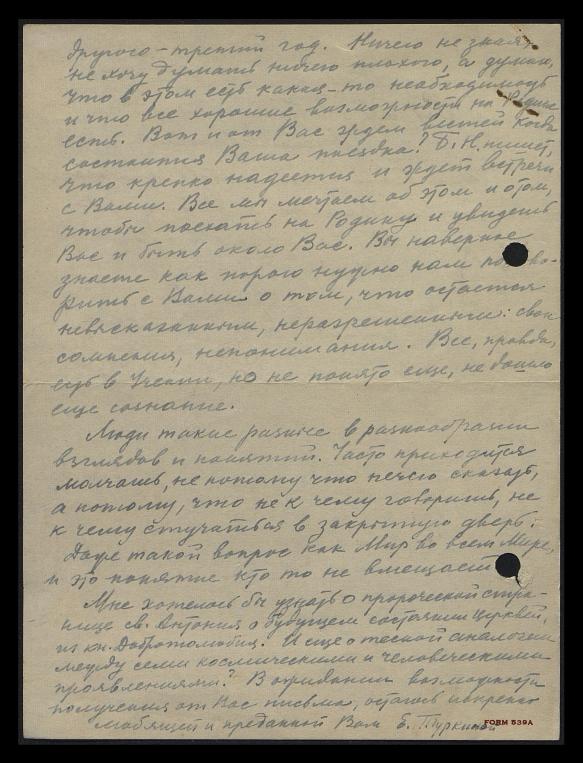 другого – третий год. Ничего не знаем,
не хочу думать ничего плохого, а думаю,
что в этом есть какая-то необходимость
и что все хорошие возможности на Родине
есть. Вот и от Вас ждем вестей когда
состоится Ваша поездка? Б. Н. пишет,
что крепко надеется и ждет встречи
с Вами. Все мы мечтаем об этом и о том,
чтобы поехать на Родину и увидеть
Вас и быть около Вас. Вы наверное
знаете как порою нужно нам погово-
рить с Вами о том, что остается
невысказанным, неразрешенным: свои
сомнения, непонимания. Все, правда,
есть в Учении, но не понято еще, не дошло
еще сознание.
Люди такие разные в разнообразии
взглядов и понятий. Часто приходится
молчать, не потому что нечего сказать,
а потому, что не к чему говорить, не
к чему стучаться в закрытую дверь.
Даже такой вопрос как Мир во всем Мире,
и это понятие кто то не вмещает
Мне хотелось бы узнать о пророческой стра-
нице св. Антония о будущем состоянии церквей,
из кн. Добротолюбия. И еще о тесной аналогии
между семи космическими и человеческими
проявлениями? В ожидании возможности
получения от Вас письма, остаюсь искренно
любящей и преданной Вам Е. Туркиной
FORM 539A